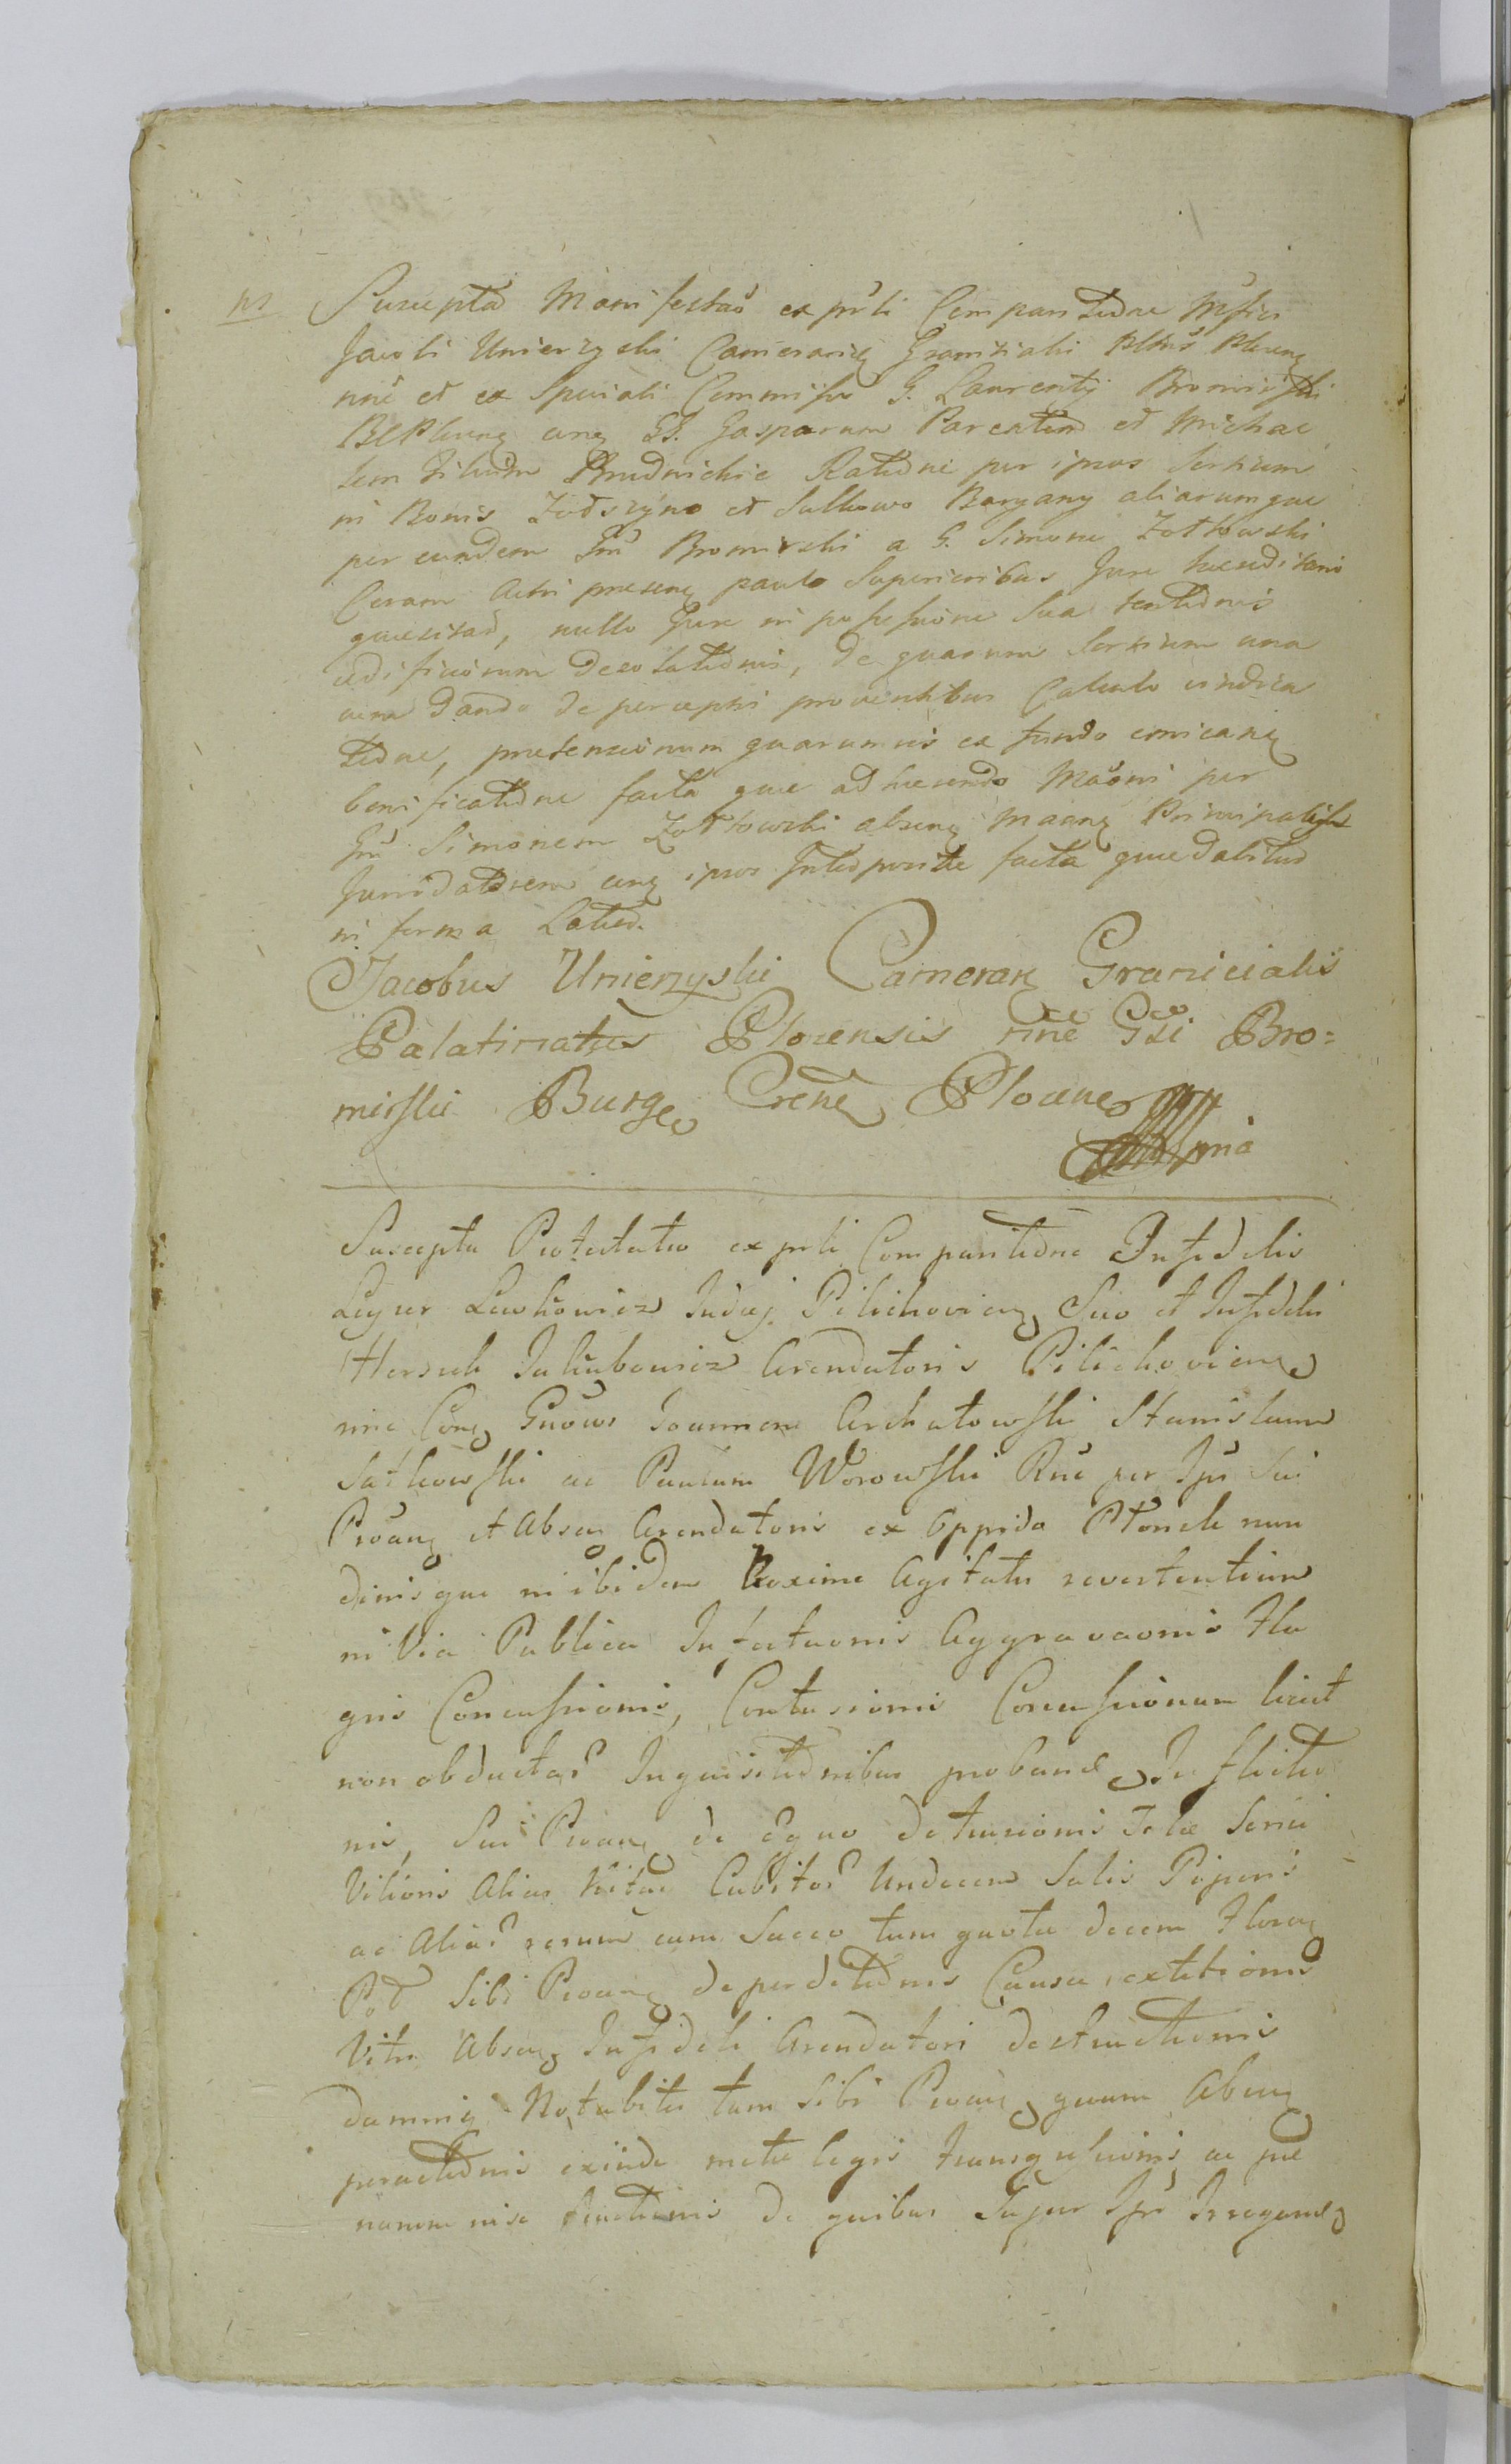 ns Suscepta Manifestao ex prsti Comparitione Mgfici
Jacobi Unierzyski Camerarii Granicialis Pltus Plocen
nne et ex Speciali Commisso G. Laurentij Bromirski
BCPlocen cung GG. Gasparum Parentem et Michae
lem Filium Rudnickie Ratione per ipsos Sortium
in Bonis Zdtszyno et Sulkowo Baryany aliarumque
per eundem Gm Bromirski a G. Simone Zottowski
Coram Actis presen paulo Superioribus Jure haereditario
quaesitar, nullo Jure in possessione Sua tentionis
aedificiorum Desolationis, de quarum Sortium una
cum dando de perceptis proventibus Calculo vindica
tione, pretensionum quarumvis ex fundo emican
bonificatione facta que adhaerendo Maoni per
Gm Simonem Zottowski absen maan Principalem
Juridatorem cung ipsos Interposita facta que dabitur
in forma Latiori.
Jacobus Unierzyski Camerar Granicialis
Palatinatus Plocensis nne Gsi Bro=
mirski Burg Crene Plocen
mia
Suscepta Protestatio ex prsti Comparitione Infidelis
Leyzer Lewkowicz Judaej Pilichovien Suo et Infidelis
Herszek Jakubowicz Arendatoris Pilichovien
nne Con Gnosos Joannem Archutowski Stanislaum
Sutkowski ac Paulum Worowski Rne per Ips Sui
Proan et Absen Arendatoris ex Oppido Płonsk nun
dinisque in ibidem Proxime Agitatis revertentium
in Via Publica Infestaonis Aggravaonis Fla
gris Concussionis, Contusionis Concussionum licet
non obductar Inquisitionibus proband Inflictio
nis, Sui Proan de Equo detrusionis Telae Serici
Vilioris Alias Kitay Cubitor Undecem Salis Piperis
ac Aliar rerum cum Sacco tum quota decem Floren
Pol Sibi Proan deperditionis Causae extitionis
Vitri Absen Infideli Arendatori destructionis
damniq Notabilis tam Sibi Proan quam Absen
peractionis exinde metu legis transgressionis ac pae
narum in se Reactionis de quibus Super Ips Irrogand